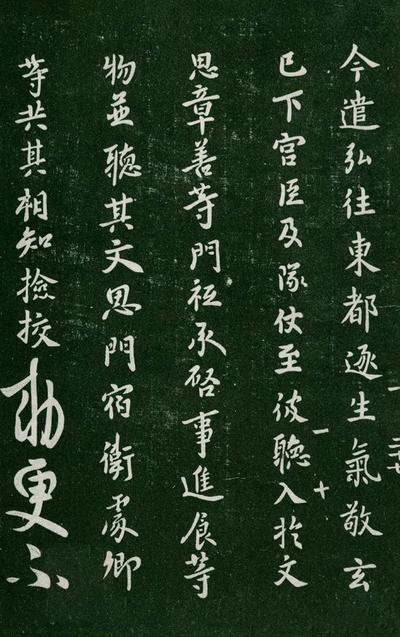 今遣弘往東都逐生氣敬玄
已下官臣及隊仗至彼聽入於文
思章善等門祗承啓事進食等
物並聽其文思門宿衛處卿
等共其相知撿挍勅更不